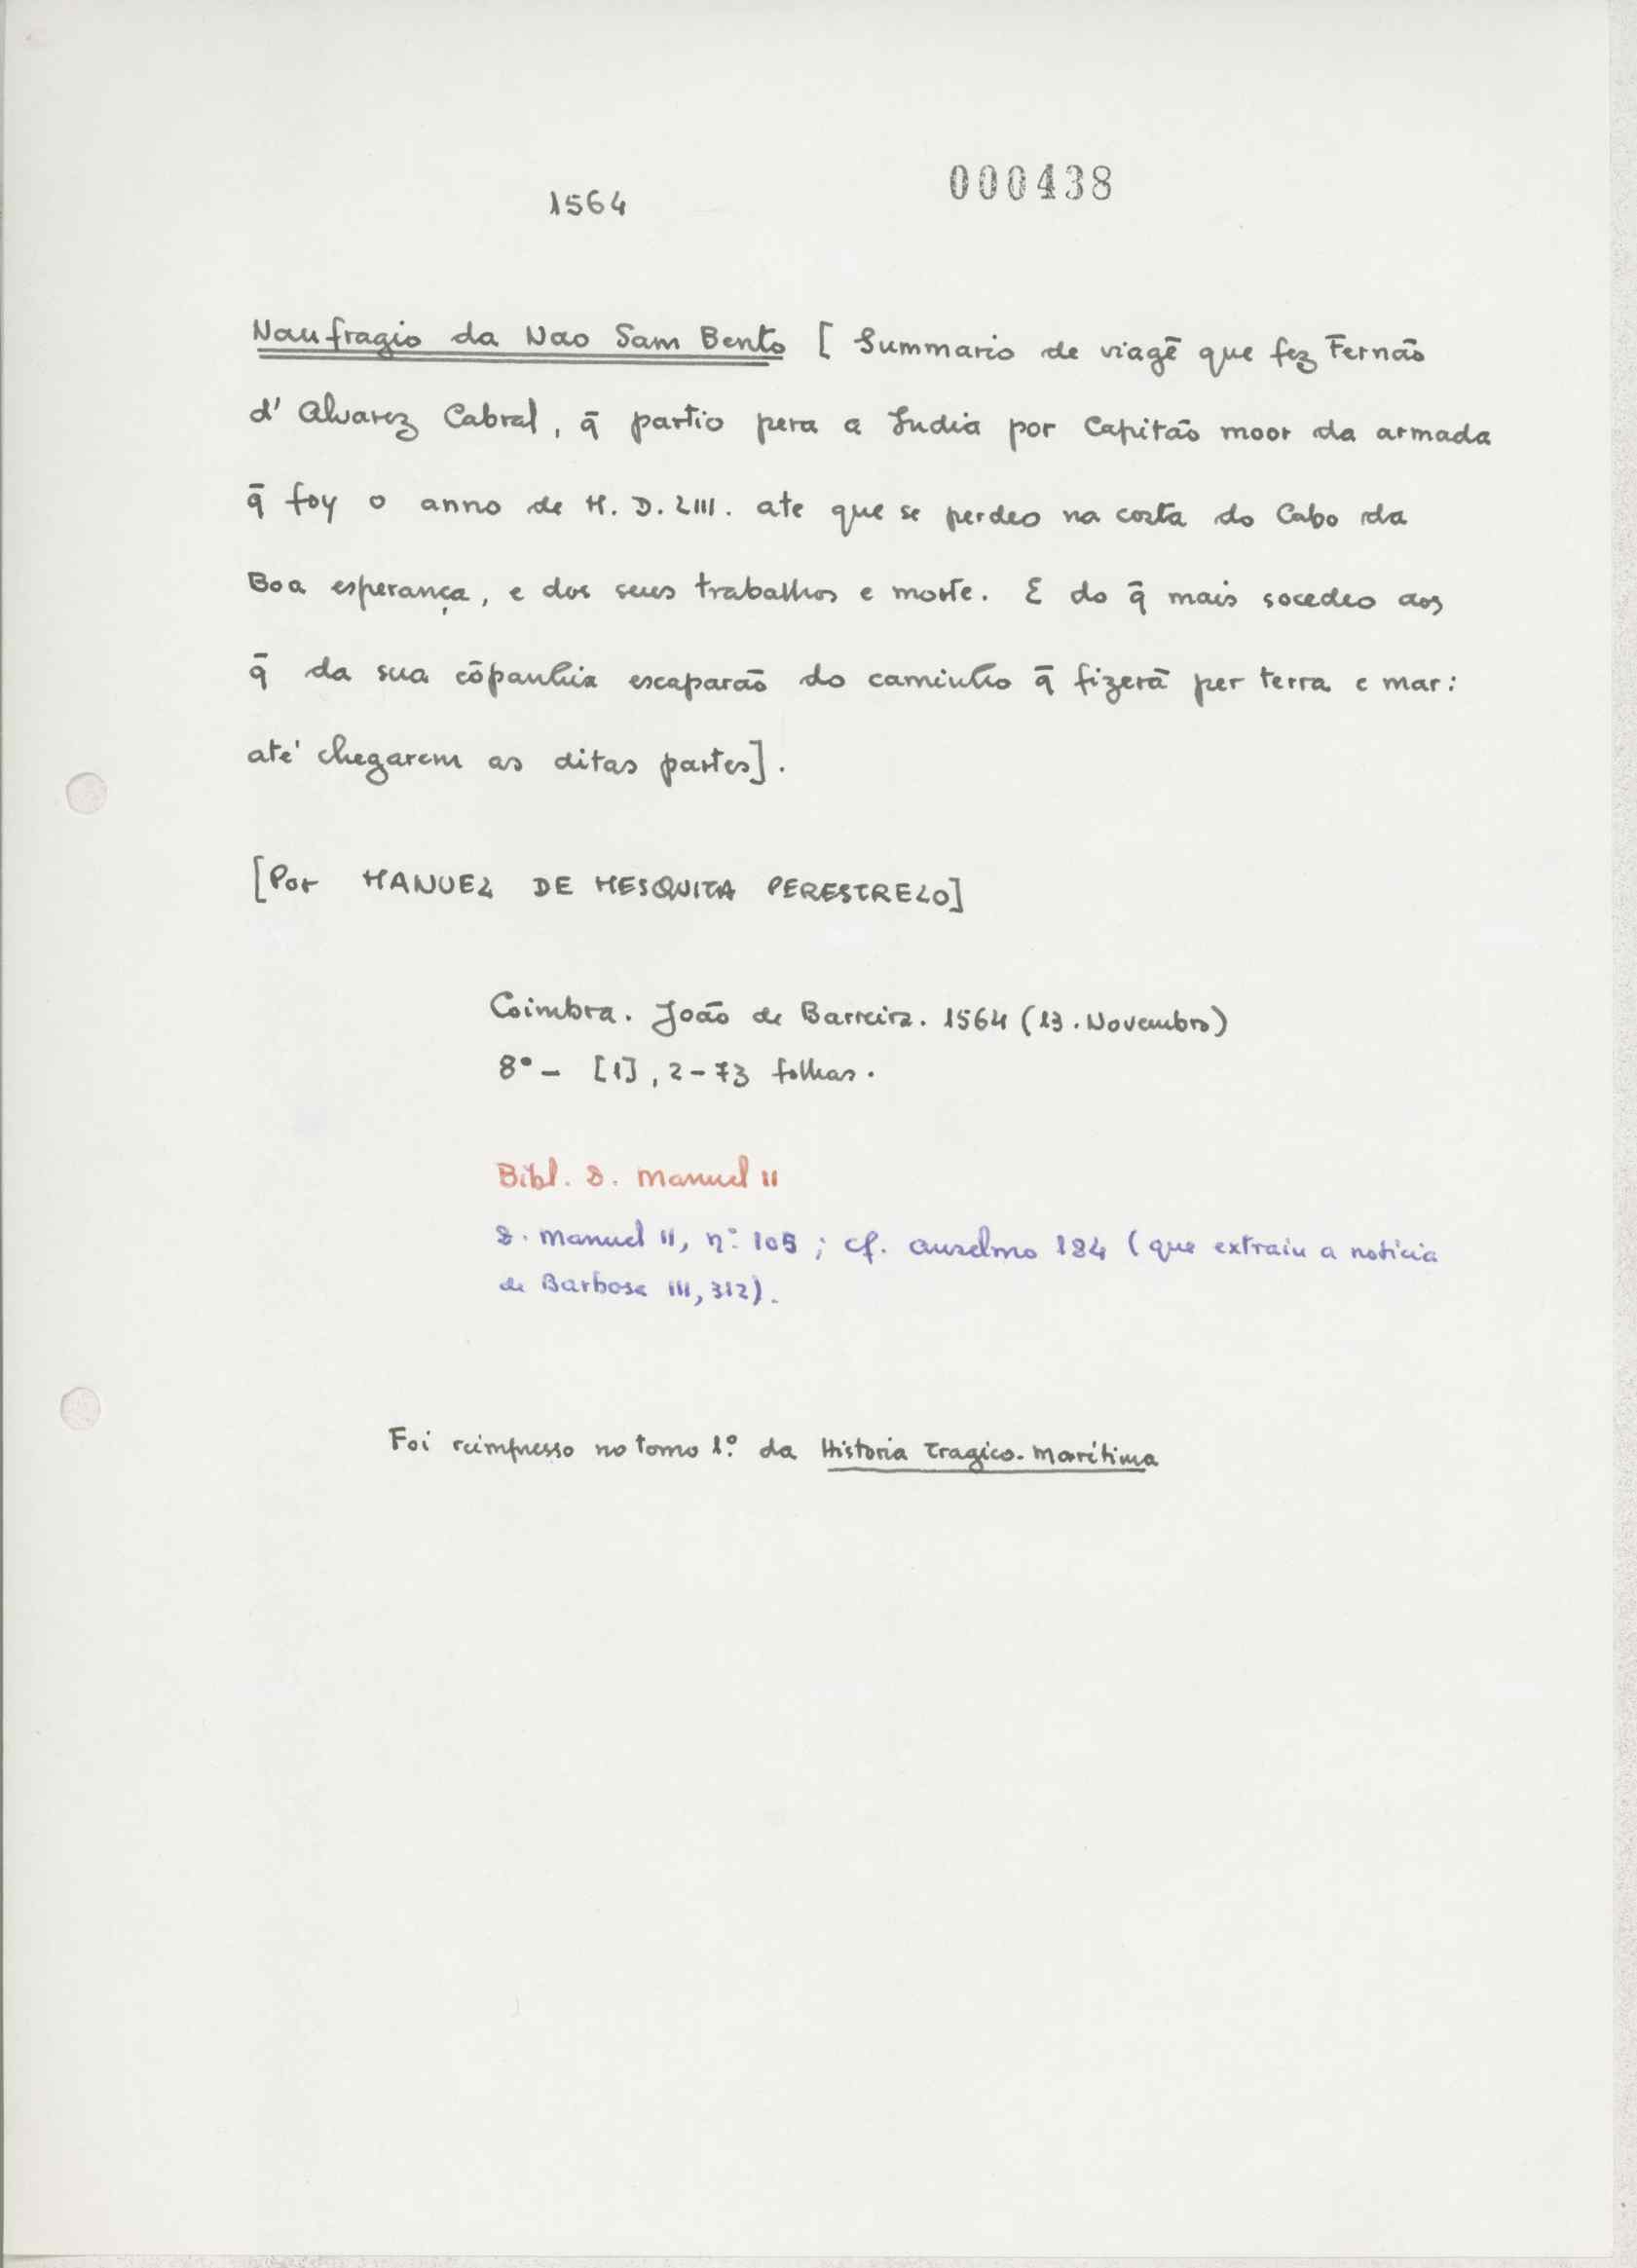 000438
1564
Naufragio da Nao Sam Bento [ Summario de viagẽ que fez Fernão
d' Alvarez Cabral, q̄ partio pera a India por Capitão moor da armada
q̄ foy o anno de M. D. LIII. ate que se perdeo na costa do Cabo da
Boa esperança, e dos seus trabalhos e morte. E do q̄ mais socedeo aos
q̄ da sua cõpanhia escaparão do caminho q̄ fizerã per terra e mar:
até chegarem as ditas partes].
[Por MANUEL DE MESQUITA PERESTRELO]
Coimbra. João de Barreira. 1564 (13. Novembro)
8º - [1], 2-73 folhas.
Bibl. D. Manuel II
D. Manuel II, nº 105 ; cf. Anselmo 184 (que extraiu a noticia
de Barbosa III, 312).
Foi reimpresso no tomo 1º da Historia Tragico-Marítima